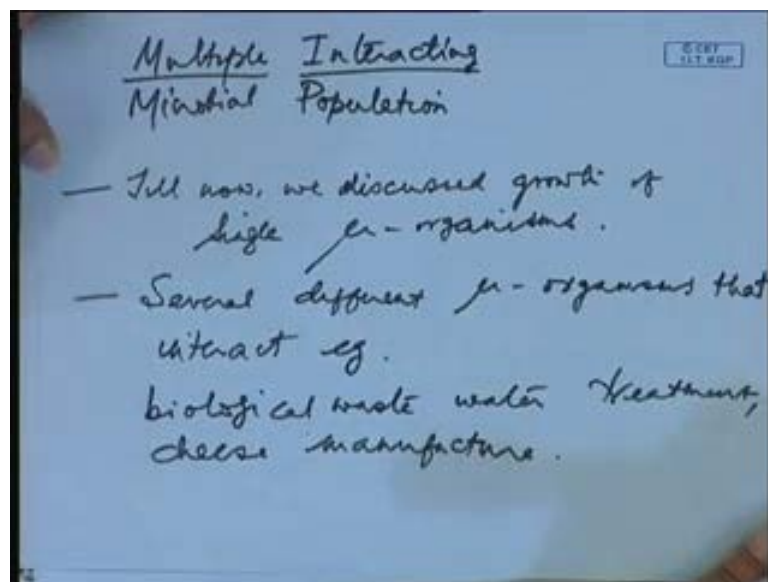 Multiple Interacting
Microbial Population
© CET
I.I.T. KGP
— Till now, we discussed growth of
single μ-organisms.
— Several different μ-organisms that
interact eg.
biological waste water treatment,
cheese manufacture.